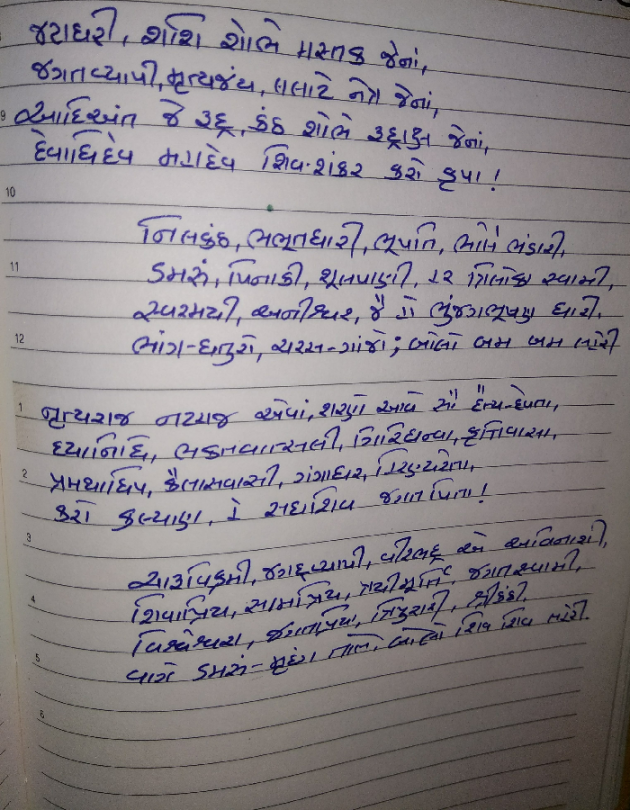 જટાધારી, શશિ શોભે મસ્તક જેનાં,
જગતવ્યાપી, મૃત્યુજંય, લલાટે નેત્ર જેનાં,
9 આદિઅંત જે રૂદ્ર, કંઠ શોભે રૂદ્રાક્ષ જેનાં,
દેવાધિદેવ મહાદેવ શિવ-શંકર કરો કૃપા!
10
નિલકંઠ, ભભૂતધારી, ભૂપતિ, ભોલે ભંડારી,
11 ડમરું, પિનાકી, શૂલપાણી, હર ત્રિલોક સ્વામી,
સ્વરમયી, અનીશ્વર, જે ભુંજગભૂષણ ધારી,
12 ભાંગ-ધતુરો, ચરસ-ગાંજો; બોલો બમ બમ લહેરી
1 નૃત્યરાજ નટરાજ એવાં, શરણે આવે સૌ દૈત્ય-દેવતા,
દયાનિધિ, ભક્તવાત્સલી, ગિરિધન્વા, કૃત્તિવાસા,
2 પ્રમથાધિપ, કૈલાસવાસી, ગંગાધર, હિરણ્યરેતા,
કરો કલ્યાણ, હે સદાશિવ જગતપિતા!
3
ચારૂવિક્રમી, જગદ્વ્યાપી, વીરભદ્ર એ અવિનાશી,
4 શિવાપ્રિય, સામપ્રિય, ત્રયીમૂર્તિ, જગતસ્વામી,
વિશ્વેશ્વરા, જગતપ્રિય, ત્રિપુરારી, શ્રીકંઠી,
5 વાગે ડમરું-મૃદંગ તાલે, બોલો શિવ શિવ લહેરી.
6